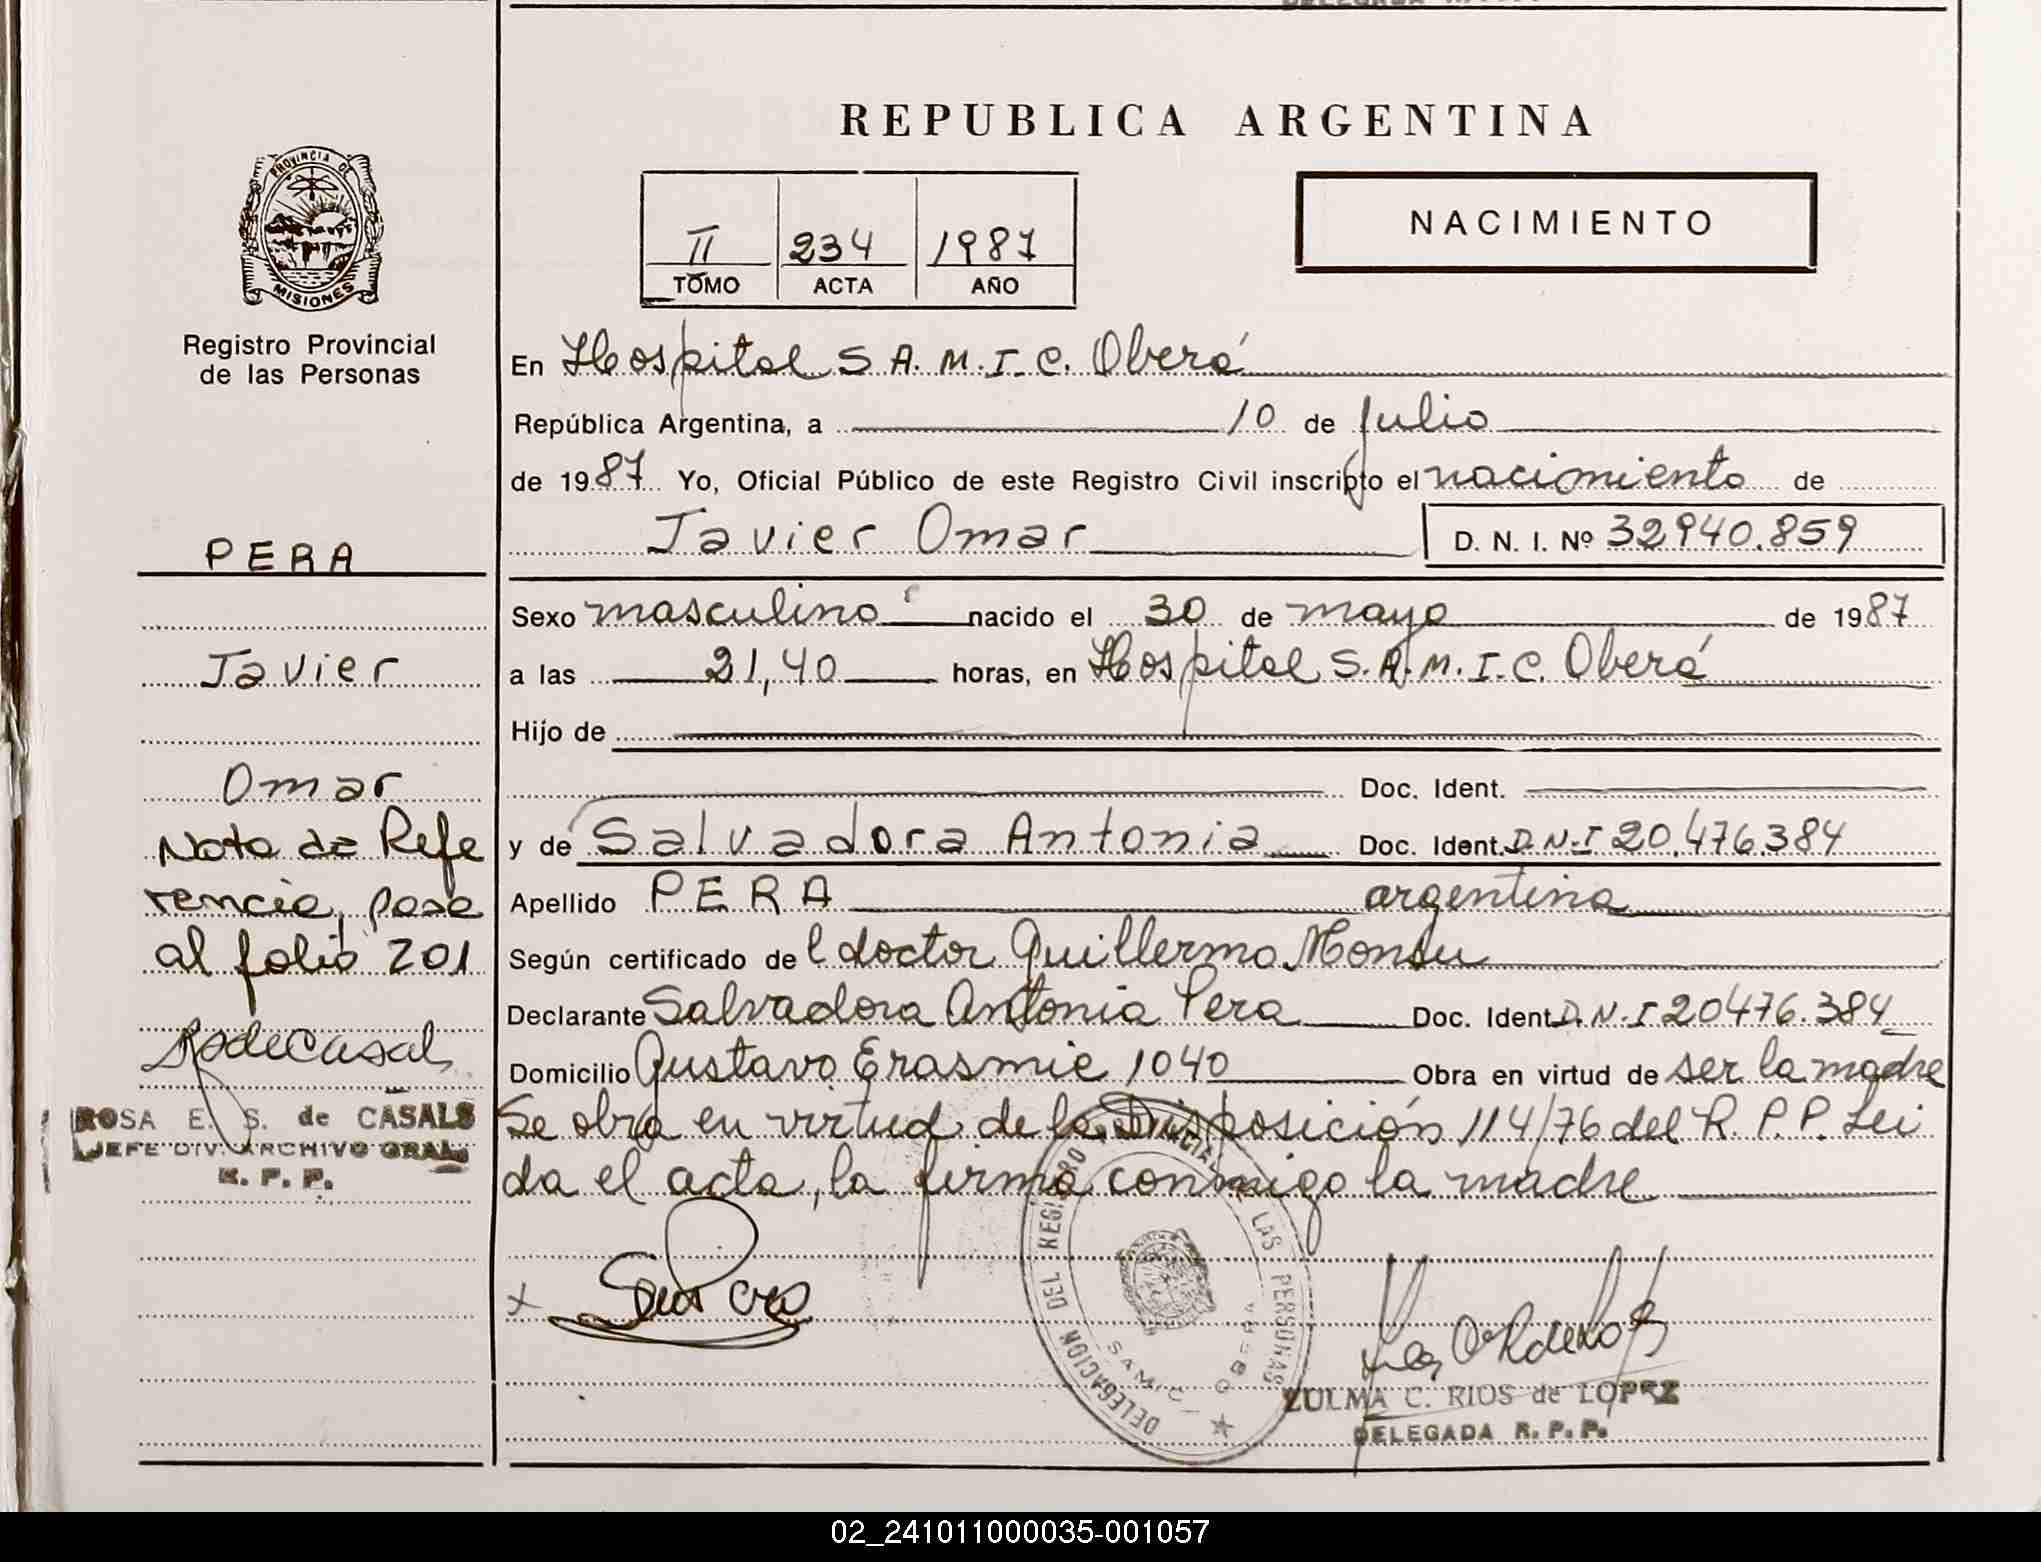 REPUBLICA ARGENTINA
PROVINCIA DE
MISIONES
Registro Provincial
de las Personas
II 234 1987
TOMO ACTA AÑO
NACIMIENTO
En Hospital S.A.M.I.C. Oberá
República Argentina, a 10 de julio
de 1987 Yo, Oficial Público de este Registro Civil inscripto el nacimiento de
Javier Omar D. N. I. Nº 32940.859
Sexo masculino nacido el 30 de mayo de 1987
a las 21,40 horas, en Hospital S.A.M.I.C. Oberá
Hijo de
Doc. Ident.
y de Salvadora Antonia Doc. Ident. D.N.I 20.476.384
Apellido PERA argentina
Según certificado de l doctor Guillermo
Declarante Salvadora Antonia Pera Doc. Ident. D.N.I 20476.384
Domicilio Gustavo Erasmie 1040 Obra en virtud de ser la madre
Se obra en virtud de la Disposición 114/76 del R.P.P. Lei
da el acta, la firma conmigo la madre
PERA
Javier
Omar
Nota de Refe
rencia, pasa
al folio 201
ROSA E. S. de CASALS
JEFE DIV. ARCHIVO GRAL.
R. P. P.
DELEGACION DEL REGISTRO PROVINCIAL DE LAS PERSONAS
SAMIC - OBERA
ZULMA C. RIOS de LOPEZ
DELEGADA R. P. P.
02_241011000035-001057